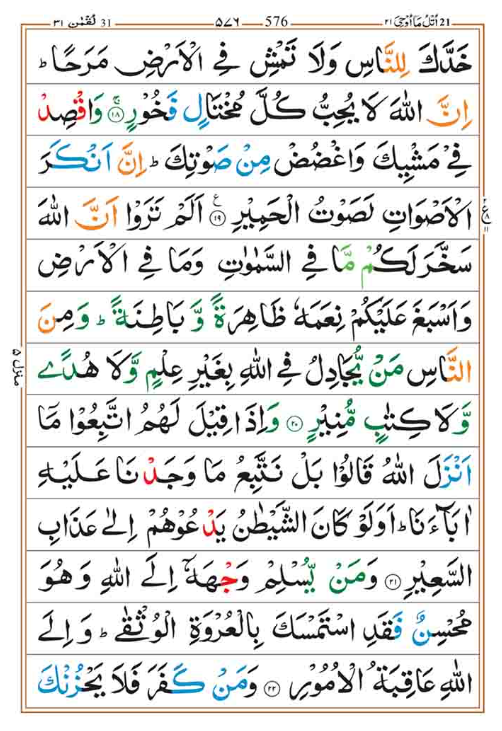 اتل ما اوحی ۲۱ 21 576 ۵۷۶ 31 لقمٰن ۳۱
خَدَّكَ لِلنَّاسِ وَلَا تَمْشِ فِي الْاَرْضِ مَرَحًا ؕ
اِنَّ اللّٰهَ لَا يُحِبُّ كُلَّ مُخْتَالٍ فَخُوْرٍ ۚ‏ ﴿۱۸﴾ وَاقْصِدْ
فِيْ مَشْيِكَ وَاغْضُضْ مِنْ صَوْتِكَ ؕ اِنَّ اَنْكَرَ
الْاَصْوَاتِ لَصَوْتُ الْحَمِيْرِ ﴿۱۹﴾ اَلَمْ تَرَوْا اَنَّ اللّٰهَ
سَخَّرَ لَكُمْ مَّا فِي السَّمٰوٰتِ وَمَا فِي الْاَرْضِ
وَاَسْبَغَ عَلَيْكُمْ نِعَمَهٗ ظَاهِرَةً وَّ بَاطِنَةً ؕ وَمِنَ
النَّاسِ مَنْ يُّجَادِلُ فِي اللّٰهِ بِغَيْرِ عِلْمٍ وَّلَا هُدًى
وَّلَا كِتٰبٍ مُّنِيْرٍ ﴿۲۰﴾ وَاِذَا قِيْلَ لَهُمُ اتَّبِعُوْا مَا
اَنْزَلَ اللّٰهُ قَالُوْا بَلْ نَتَّبِعُ مَا وَجَدْنَا عَلَيْهِ
اٰبَآءَنَا ؕ اَوَلَوْ كَانَ الشَّيْطٰنُ يَدْعُوْهُمْ اِلٰى عَذَابِ
السَّعِيْرِ ﴿۲۱﴾ وَمَنْ يُّسْلِمْ وَجْهَهٗۤ اِلَى اللّٰهِ وَهُوَ
مُحْسِنٌ فَقَدِ اسْتَمْسَكَ بِالْعُرْوَةِ الْوُثْقٰى ؕ وَاِلَى
اللّٰهِ عَاقِبَةُ الْاُمُوْرِ ﴿۲۲﴾ وَمَنْ كَفَرَ فَلَا يَحْزُنْكَ
منزل ۵